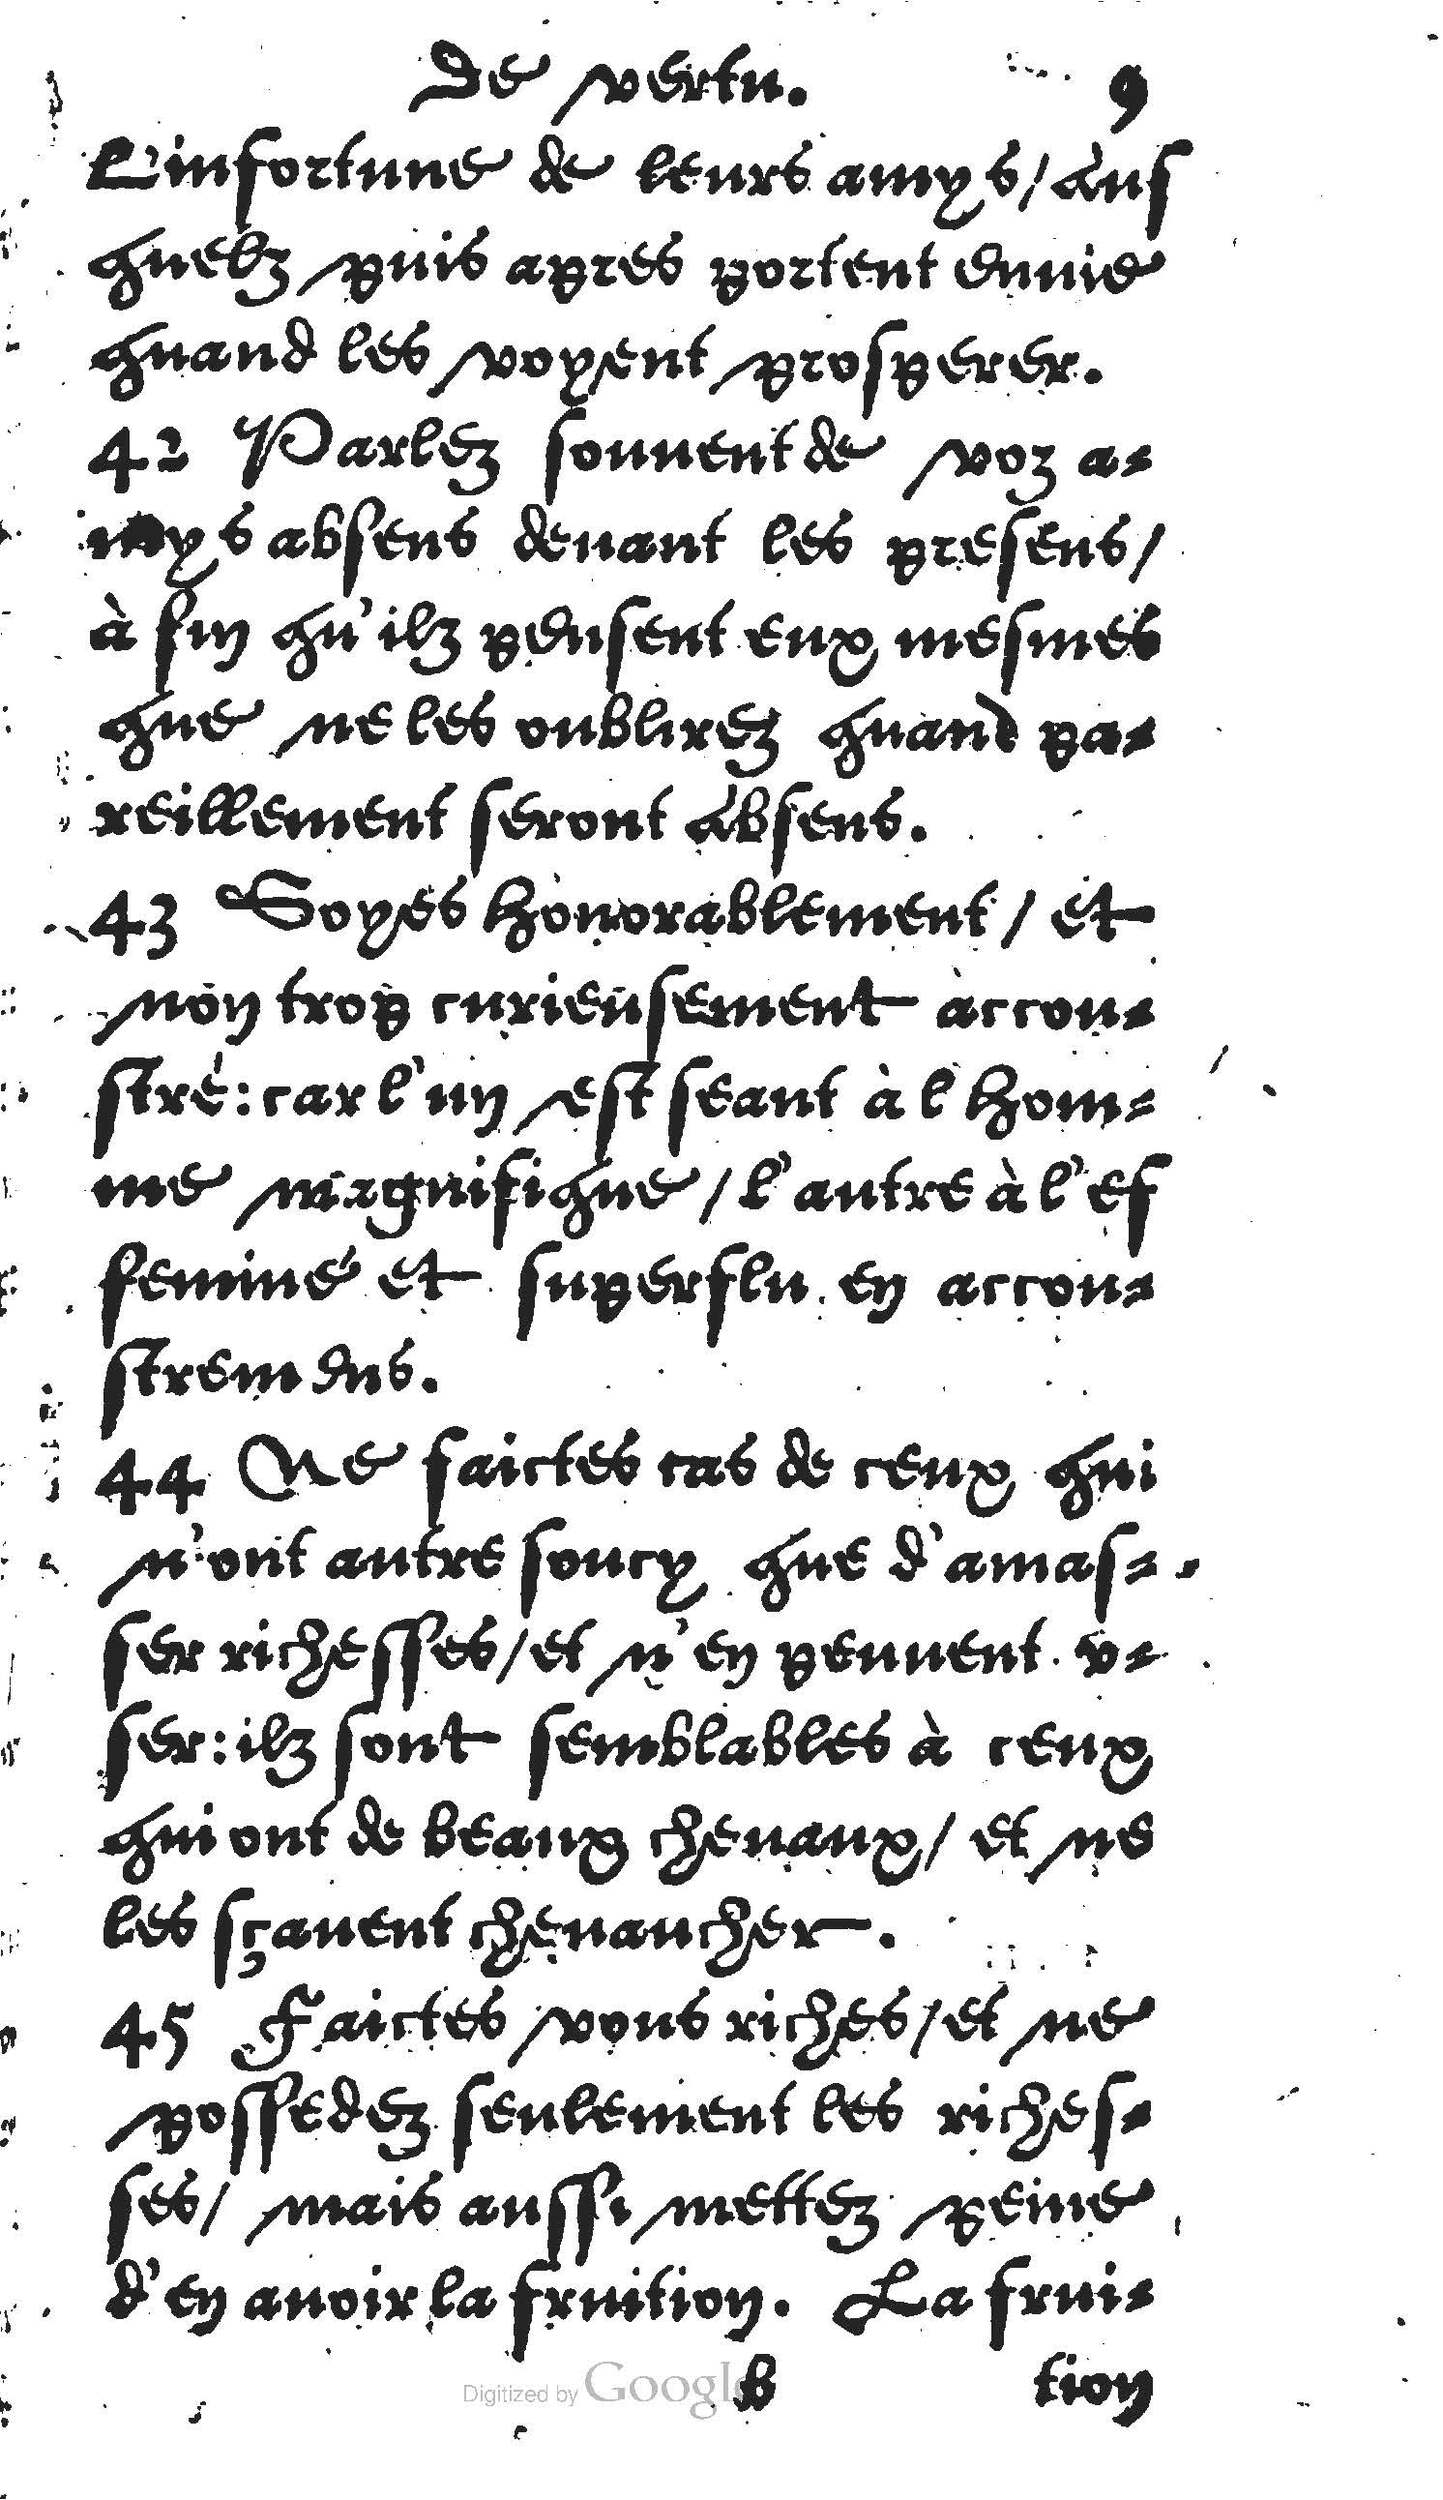 De vertu. 9
L'infortune de leurs amys/ aus
quelz puis apres portent enuie
quand les voyent prosperer.
42 Parlez souuent de voz a-
mys absens deuant les presens/
à fin qu'ilz pensent eux mesmes
que ne les oublirez quand pa-
reillement seront absens.
43 Soyes honorablement/ et
non trop curieusement accou-
stré: car l'un est seant à l hom-
me magnifique/ l'autre à l'ef
feminé et superflu en accou-
stremens.
44 Ne faictes cas de ceux qui
n'ont autre soucy que d'amas-
ser richesses/ et n'en peuuent v-
ser: ilz sont semblables à ceux
qui ont de beaux cheuaux/ et ne
les sçauent cheuaucher.
45 Faictes vous riches/ et ne
possedez seulement les riches-
ses/ mais aussi mettez peine
d'en auoir la fruition. La frui-
b tion
Digitized by Google